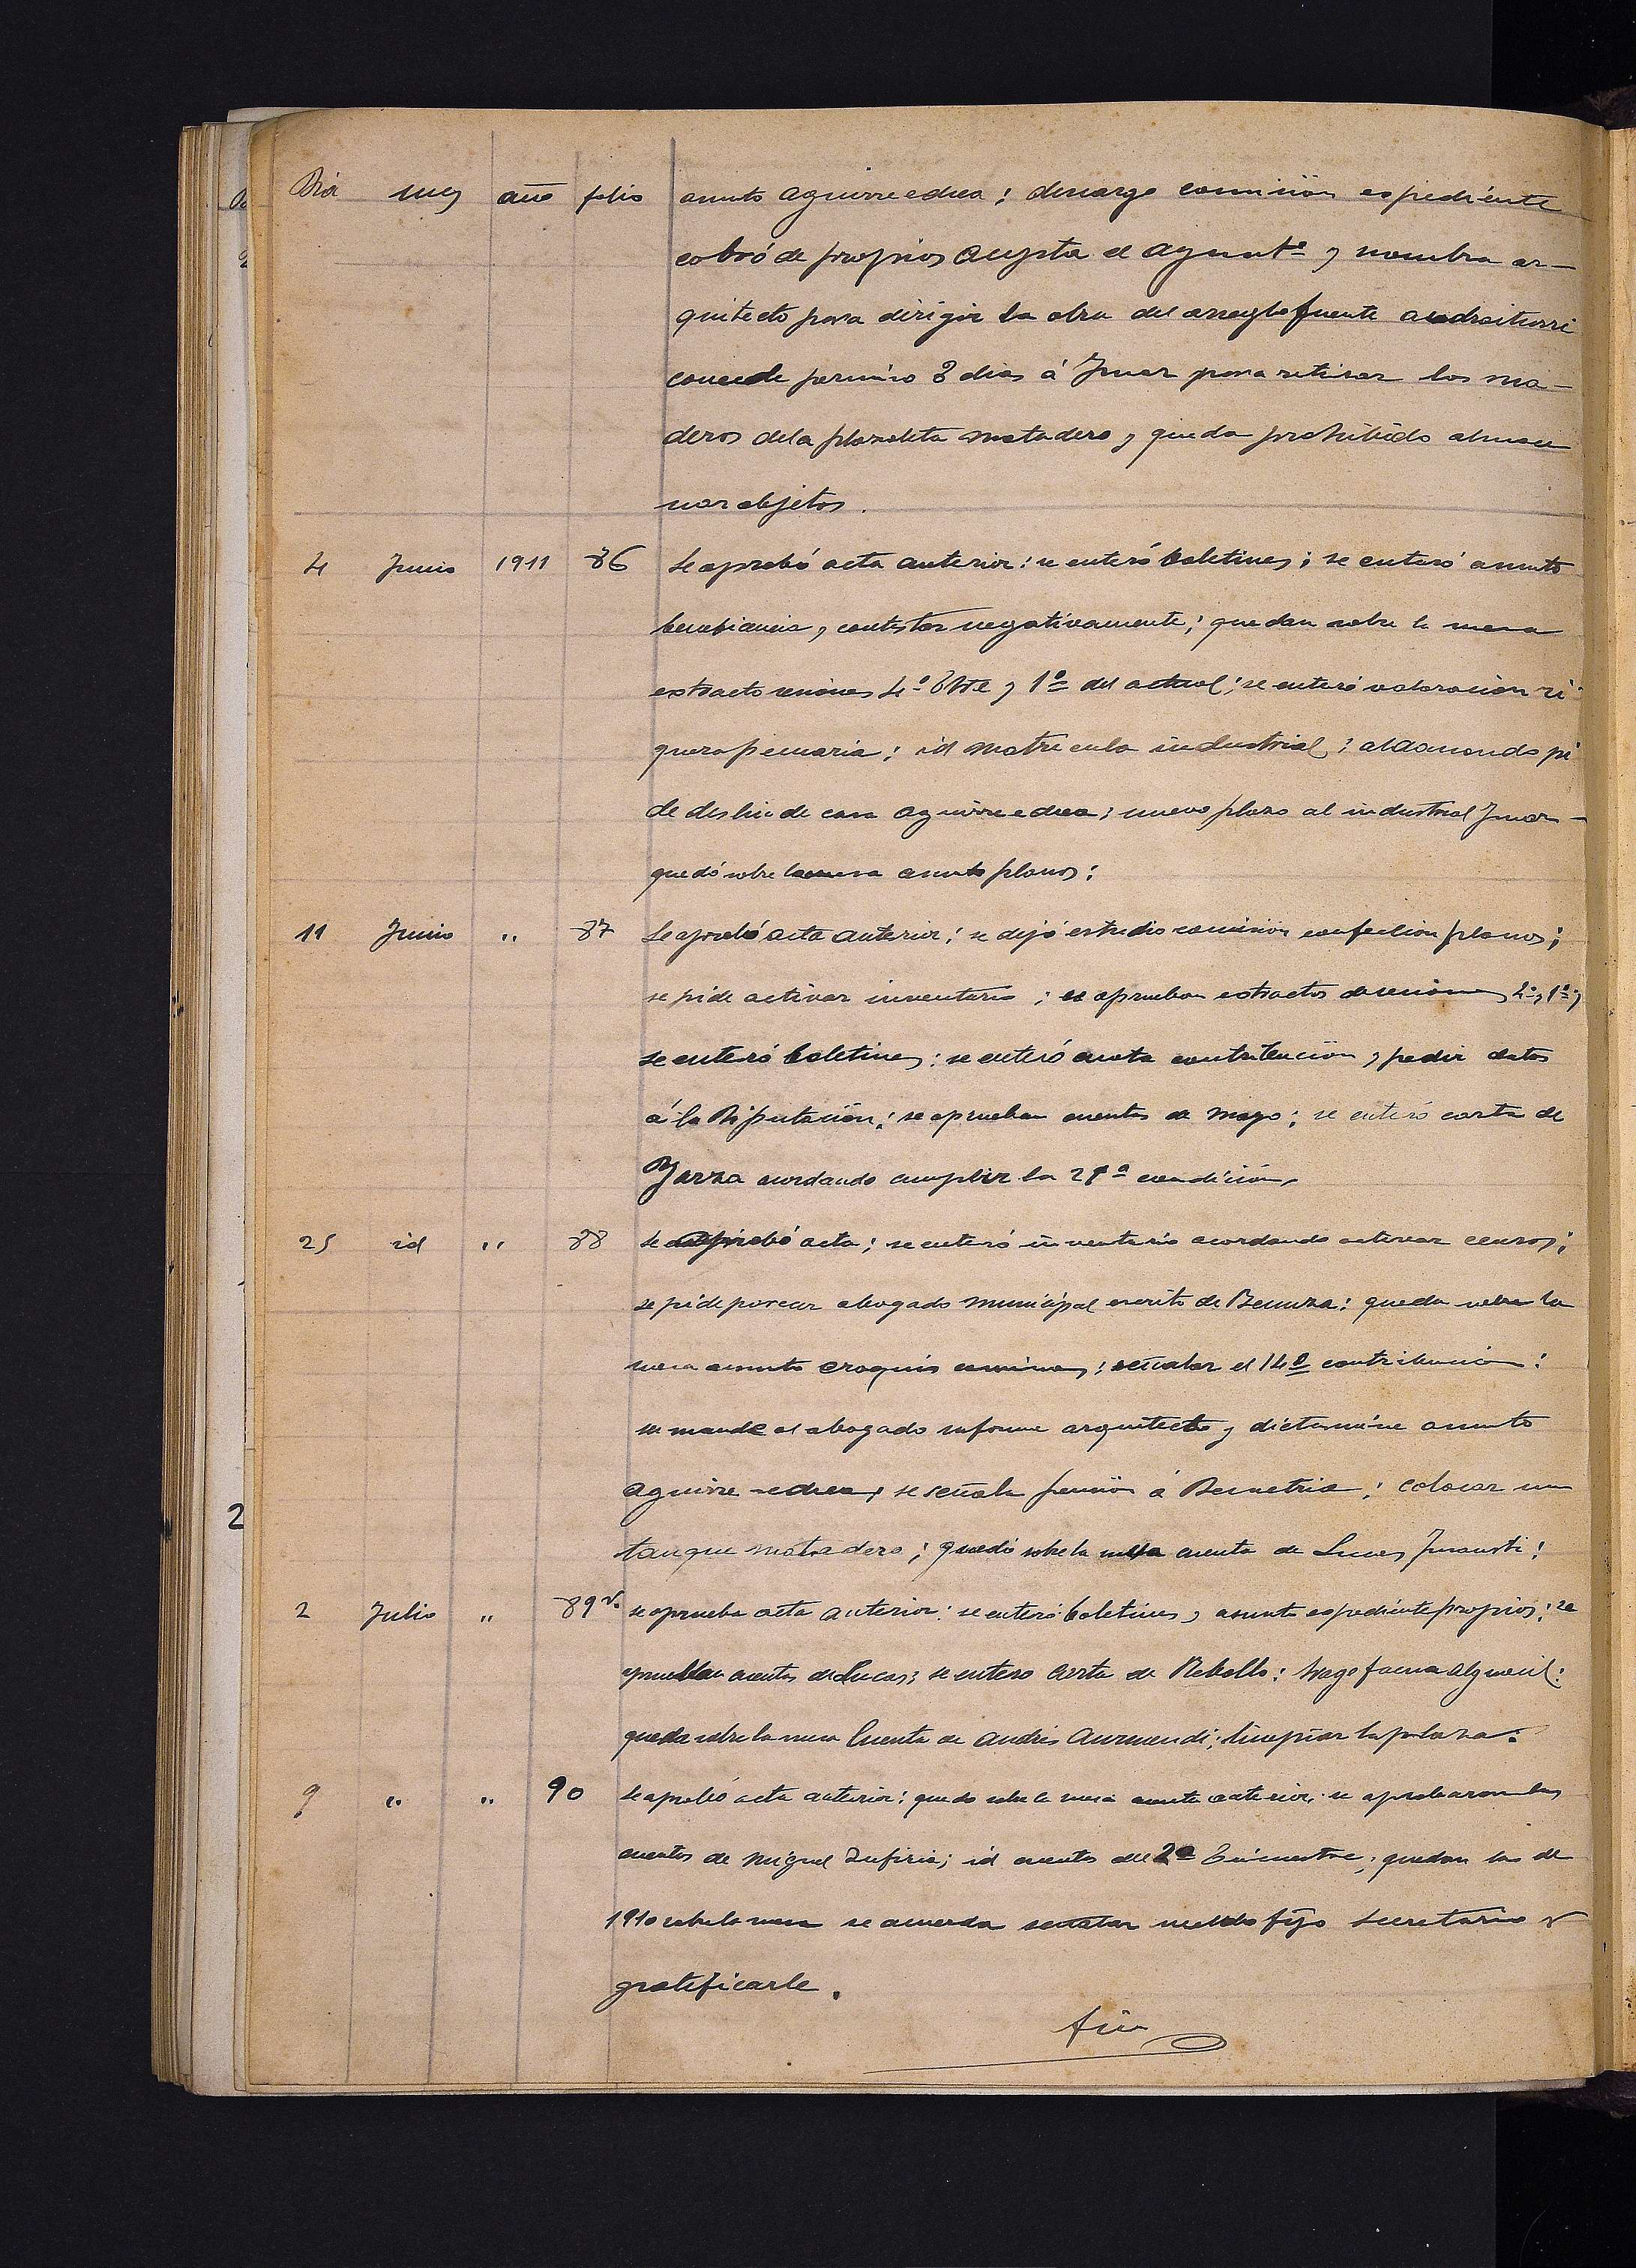 Dia mes año folio asunto aguirre edrea; descargo comision espediente
cobró de propios acepta el ayuntº y nombra ar-
quitecto para dirigir la obra del arreglo fuente
concede permiso 8 dias á para retirar los ma-
deros dela plazoleta matadero y queda prohibido almace
nar objetos.
4 Junio 1911 86 Se aprobó acta anterior: se enteró boletines; se enteró asunto
contestar negativamente; quedan sobre la mesa
estracto sesiones 4º y 1º del actual; se enteró valoracion ri
queza pecuaria; id matricula industrial; pi
de deslinde casa aguirre edrea; nuevo plazo al industrial
quedó sobre la mesa asunto planos;
11 Junio " 87 Se aprobó acta anterior; se dejó estudio comision confeccion planos;
se pide activar inventario; se aprueban estractos de sesiones 1º;
se enteró boletines; se enteró contribucion y pedir datos
á la Diputación; se aprueban cuentas de mayo; se enteró carta de
acordando cumplir la condición.
25 id " 88 se aprobó acta; se enteró inventario acordando activar censos;
se pide abogado municipal escrito de queda sobre la
mesa asunto croquis caminos; señalar el 14º contribucion;
se mande al abogado informe arquitecto y dictamine asunto
aguirre edrea; se señala pension á Demetria; colocar un
tanque matadero; quedó sobre la mesa cuenta de Lucas
2 Julio " 89 vº se aprueba acta anterior: se enteró boletines y asunto espediente propios; se
aprueban cuentas de Lucas; se entero carta de Rebollo; alguacil:
queda sobre la mesa Cuenta de Andrés limpiar la plaza.
9 " " 90 Se aprobó acta anterior; quedo sobre la mesa anterior; se aprobaron las
cuentas de Miguel Zufiria; id cuentas del 2º trimestre; quedan las de
1910 sobre la mesa se acuerda señalar sueldo fijo secretario y
gratificarle.
Fin